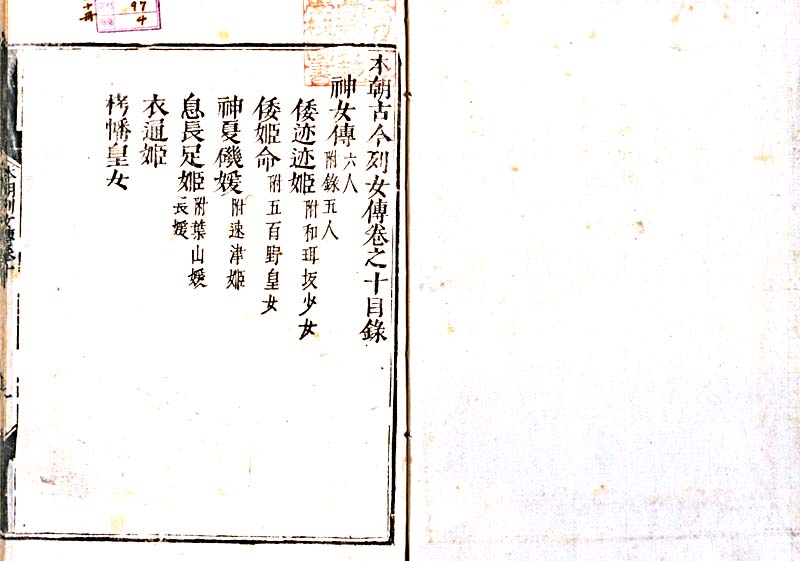 本朝古今列女傳卷之十目錄
神女傳 六人 附錄五人
倭迹迹姫 附和珥坂少女
倭姫命 附五百野皇女
神夏磯媛 附速津姫
息長足姫 附葉山媛 長媛
衣通姫
栲幡皇女
97
4